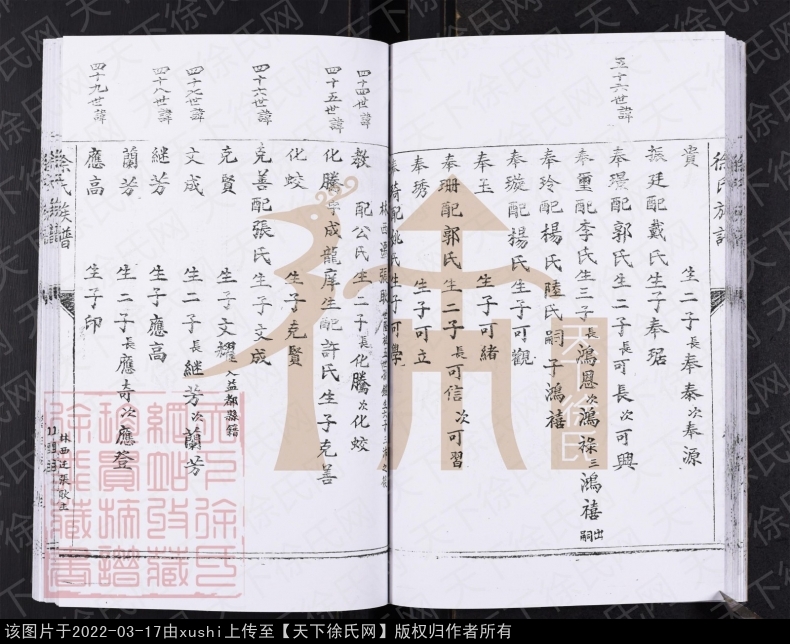 徐氏族譜
五十六世諱
貴 生二子長奉泰次奉源
振廷配戴氏生子奉琚
奉璟配郭氏生二子長可長次可興
奉璽配李氏生三子長鴻恩次鴻祿三鴻禧出嗣
奉玲配楊氏陸氏嗣子鴻禧
奉璇配楊氏生子可觀
奉玉 生子可緒
奉珊配郭氏生二子長可信次可習
奉琇 生子可立
奉琦配姚氏生子可學
四十四世諱
教 配公氏生二子長化騰次化蛟
四十五世諱
化騰字成龍庠生配許氏生子克善
化蛟 生子克賢
四十六世諱
克善配張氏生子文成
克賢 生子文耀入益都縣籍
四十七世諱
文成 生二子長継芳次蘭芳
四十八世諱
継芳 生子應高
蘭芳 生二子長應奇次應登
四十九世諱
應高 生子印
徐氏族譜
天下徐氏
该图片于2022-03-17由xushi上传至【天下徐氏网】版权归作者所有